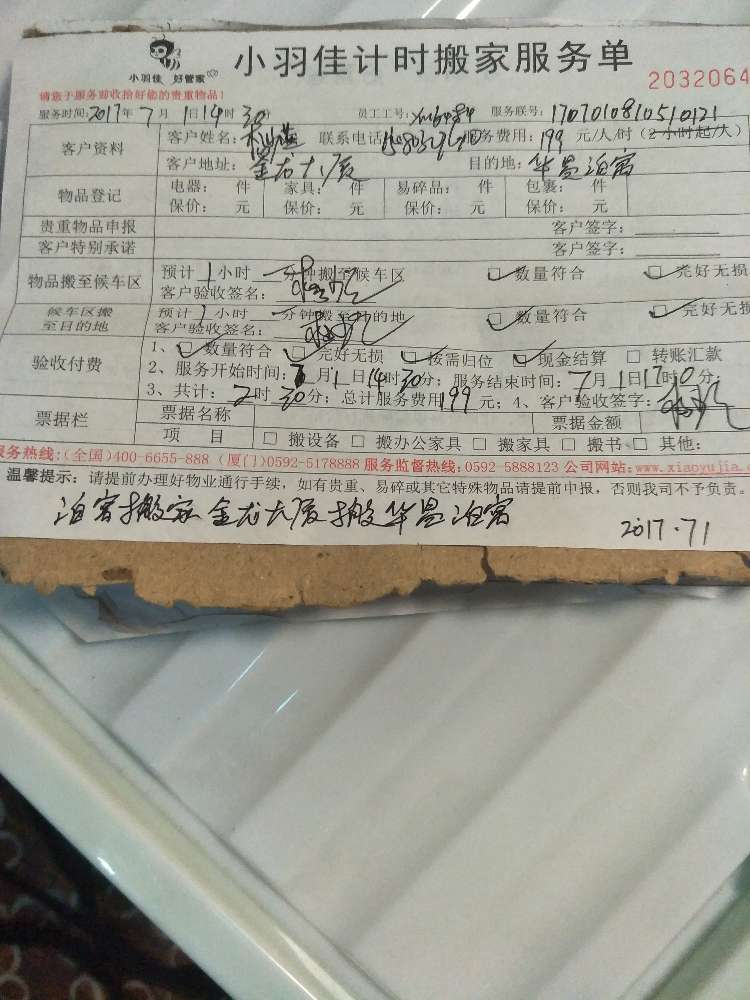 小羽佳 好管家
小羽佳计时搬家服务单
2032064
请您于服务前收拾好您的贵重物品!
服务时间:2017年7月1日14时30分 员工工号: 服务联号:1707010810510121
客户资料
客户姓名: 联系电话 服务费用:199元/人/时(2小时起/人)
客户地址:金龙大厦 目的地:华昌泊寓
物品登记
电器: 件 家具: 件 易碎品: 件 包裹: 件
保价: 元 保价: 元 保价: 元 保价: 元
贵重物品申报 客户签字:
客户特别承诺 客户签字:
物品搬至候车区
预计1小时一分钟搬至候车区 数量符合 完好无损
客户验收签名:
候车区搬至目的地
预计1小时一分钟搬至目的地 数量符合 完好无损
客户验收签名:
验收付费
1、数量符合 完好无损 按需归位 现金结算 转账汇款
2、服务开始时间:7月1日14时30分;服务结束时间:7月1日17时0分;
3、共计:2时30分;总计服务费用199元;4、客户验收签字:
票据栏
票据名称 票据金额
项 目 搬设备 搬办公家具 搬家具 搬书 其他:
服务热线:(全国)400-6655-888 (厦门)0592-5178888 服务监督热线:0592-5888123 公司网站:www.xiaoyujia.c
温馨提示:请提前办理好物业通行手续,如有贵重、易碎或其它特殊物品请提前申报,否则我司不予负责。
泊寓搬家 金龙大厦搬华昌泊寓
2017.71